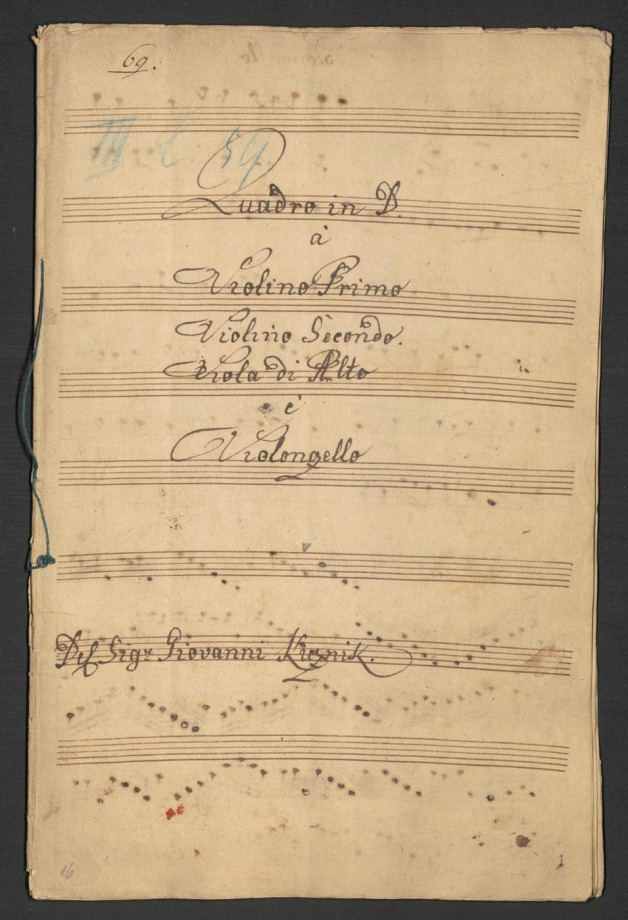 69.
III c. 59.
Quadro in D.
à
Violino Primo
Violino Secondo.
Viola di Alto
è
Violongello
Del Sigr Giovanni
16
1